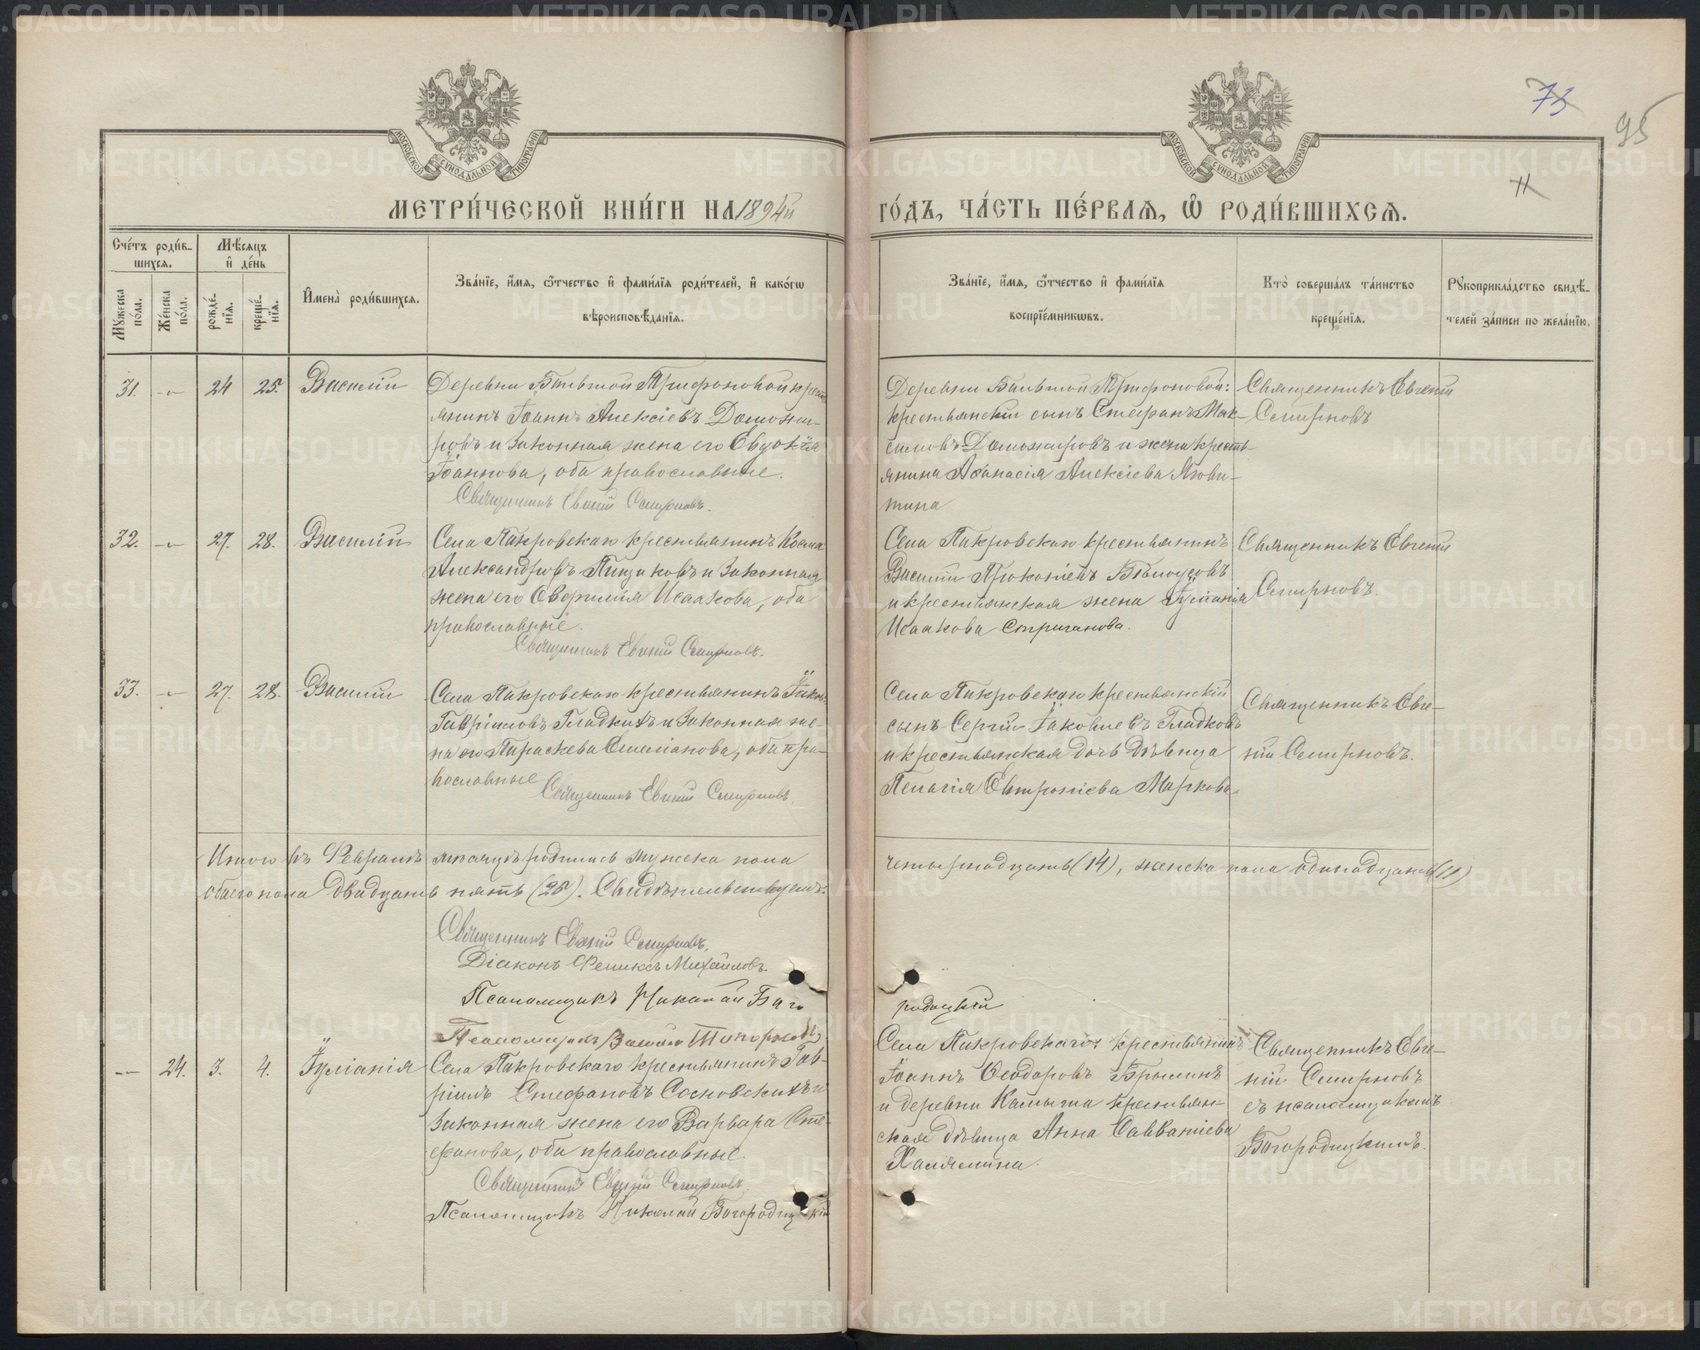 МЕТРИ́ЧЕСКОЙ КНИ́ГИ НА 1894й ГО́ДЪ, ЧА́СТЬ ПЕ́РВАѦ, Ѡ҆ РОДИ́ВШИХСѦ.
75
95
11
Сче́тъ роди́в-
шихсѧ.
Мѣ́сѧцъ
и҆ де́нь
Мꙋжеска по́ла.
Же́нска по́ла.
рожде́-
нїѧ.
креще́-
нїѧ.
И҆мена̀ роди́вшихсѧ.
Зва́нїе, и҆́мѧ, ѻ҆́тчество и҆ фами́лїѧ роди́телей, и҆ како́гѡ
вѣроисповѣ́данїѧ.
Зва́нїе, и҆́мѧ, ѻ҆́тчество и҆ фами́лїѧ
воспрїе́мникѡвъ.
Кто̀ соверша́лъ та́инство
креще́нїѧ.
Рꙋкоприкла́дство свидѣ́-
телей за́писи по жела́нїю.
31. - 24 25. Василій
Деревни Большой Трифоновой кресть
янинъ Іоаннъ Алексіевъ Доможи-
ровъ и законная жена его Евдокія
Іоаннова, оба православные.
Священникъ Евгеній Смирновъ.
Деревни Большой Трифоновой:
крестьянскій сынъ Стефанъ Мак-
симовъ Доможировъ и жена кресть-
янина Аѳанасія Алексіева Язови-
тина
Священникъ Евгеній
Смирновъ
32. - 27. 28. Василій
Села Покровскаго крестьянинъ Косма
Александровъ Пищиковъ и законная
жена его Евфимія Исаакова, оба
православные.
Священникъ Евгеній Смирновъ.
Села Покровскаго крестьянинъ
Василій Прокопіевъ Бѣлоусовъ
и крестьянская жена Іуліанія
Исаакова Стриганова.
Священникъ Евгеній
Смирновъ.
33. - 27. 28. Василій
Села Покровскаго крестьянинъ Іаковъ
Гавріиловъ Гладкихъ и законная же-
на его Параскева Емиліанова, оба пра-
вославные
Священникъ Евгеній Смирновъ.
Села Покровскаго крестьянскій
сынъ Сергій Іаковлевъ Гладковъ
и крестьянская дочь дѣвица
Пелагія Евтропіева Маркова.
Священникъ Евге-
ній Смирновъ.
Итого въ Февралѣ мѣсяцѣ родилось мужеска пола четырнадцать (14), женска пола одинадцать (11)
обаего пола двадцать пять (25). Свидѣтельствуемъ:
Священникъ Евгеній Смирновъ.
Діаконъ Феликсъ Михайловъ.
Псаломщикъ Николай Бого
родицкій
Псаломщикъ
-- 24. 3. 4. Іуліанія
Села Покровскаго крестьянинъ Гав-
ріилъ Стефановъ Сосновскихъ и
законная жена его Варвара Сте-
фанова, оба православные.
Священникъ Евгеній Смирновъ.
Псаломщикъ Николай Богородицкій
Села Покровскаго крестьянинъ
Іоаннъ Ѳеодоровъ Брылинъ
и деревни Камыша крестьян-
ская дѣвица Анна Савватіева
Халямина.
Священникъ Евге-
ній Смирновъ
съ псаломщикомъ
Богородицкимъ.
METRIKI.GASO-URAL.RU